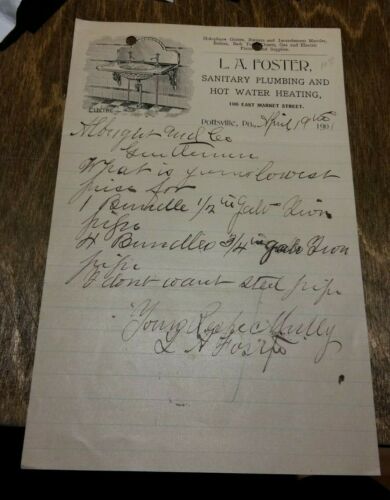 Holophane Globes, Burners and Incandescent Mantles,
Gas and Electric
Supplies.
L. A. FOSTER,
SANITARY PLUMBING AND
HOT WATER HEATING,
108 EAST MARKET STREET.
Pottsville, Pa., April 9th 190
Albright and Co
Gentlemen
What is your lowest
price for
1 Bundle 1/2 in Galv Iron
pipe
4 Bundles 3/4 in galv Iron
pipe
I dont want steel pipe
Yours Respectfully
L A Foster